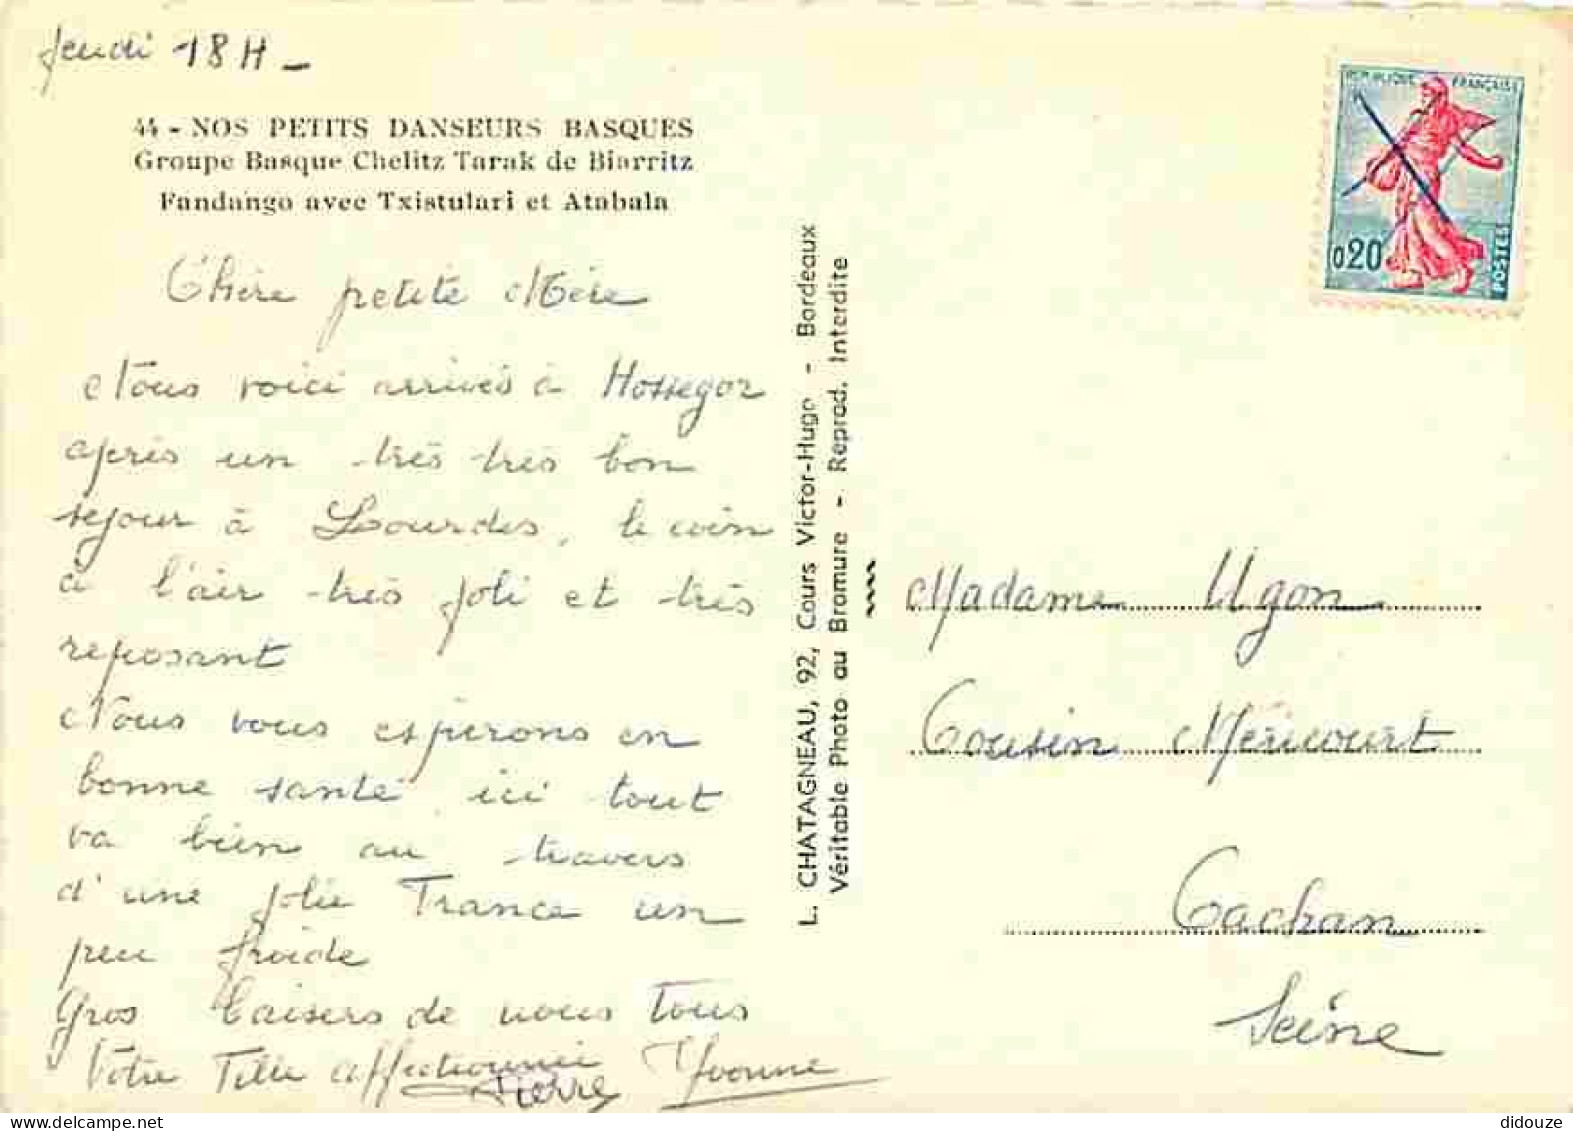 Jeudi 18H_
44 - NOS PETITS DANSEURS BASQUES
Groupe Basque Chelitz Tarak de Biarritz
Fandango avec Txistulari et Atabala
Chère petite Mère
Nous voici arrivés à Hossegor
après un très très bon
séjour à Lourdes, le coin
a l'air très joli et très
reposant
Nous vous espérons en
bonne santé, ici tout
va bien au travers
d'une jolie France un
peu froide
Gros baisers de nous tous
Votre Fille affectionnée Yvonne
Pierre
L. CHATAGNEAU, 92, Cours Victor-Hugo - Bordeaux
Véritable Photo au Bromure - Reprod. Interdite
REPUBLIQUE FRANÇAISE
0,20
POSTES
Madame Ugon
Cousin Méricourt
Cachan
Seine
didouze